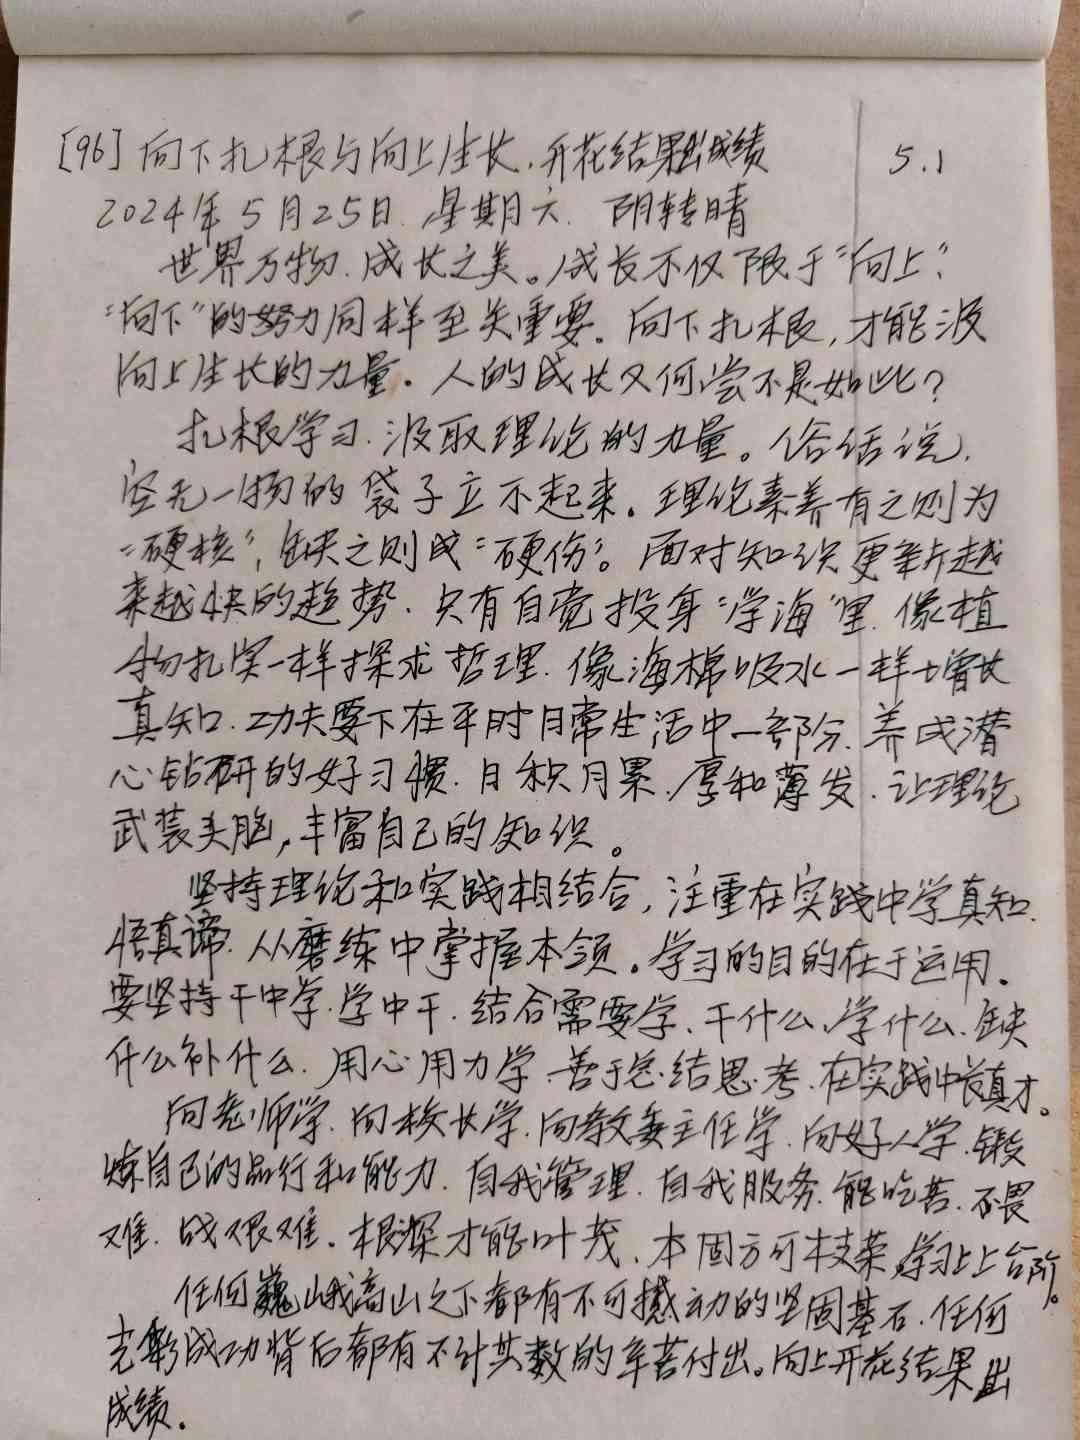 [96] 向下扎根与向上生长,开花结果出成绩 5.1
2024年5月25日 星期六 阴转晴
世界万物、成长之美。成长不仅限于“向上”,
“向下”的努力同样至关重要。向下扎根,才能汲
向上生长的力量。人的成长又何尝不是如此?
扎根学习、汲取理论的力量。俗话说、
空无一物的袋子立不起来。理论素养有之则为
“硬核”,缺之则成“硬伤”。面对知识更新越
来越快的趋势、只有自觉投身“学海”里、像植
物扎实一样探求哲理、像海棉吸水一样增长
真知、功夫要下在平时日常生活中一部分、养成潜
心钻研的好习惯、日积月累、厚和薄发、让理论
武装头脑,丰富自己的知识。
坚持理论和实践相结合,注重在实践中学真知、
悟真谛、从磨练中掌握本领。学习的目的在于运用。
要坚持干中学、学中干、结合需要学、干什么、学什么、缺
什么补什么、用心用力学、善于总结思考、在实践中长真才。
向老师学、向校长学、向教委主任学、向好人学、锻
炼自己的品行和能力、自我管理、自我服务、能吃苦、不畏
难、战艰难。根深才能叶茂、本固方可枝荣,学习上上台阶。
任何巍峨高山之下都有不可撼动的坚固基石、任何
光彩成功背后都有不计其数的辛苦付出。向上开花结果出
成绩。